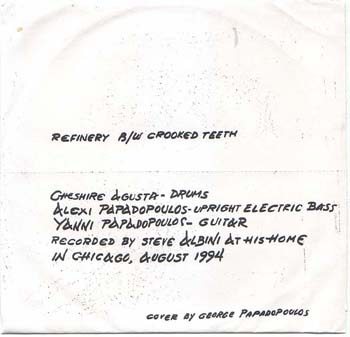 REFINERY B/W CROOKED TEETH
CHESHIRE AGUSTA - DRUMS
ALEXI PAPADOPOULOS - UPRIGHT ELECTRIC BASS
YANNI PAPADOPOULOS - GUITAR
RECORDED BY STEVE ALBINI AT HIS HOME
IN CHICAGO, AUGUST 1994
COVER BY GEORGE PAPADOPOULOS